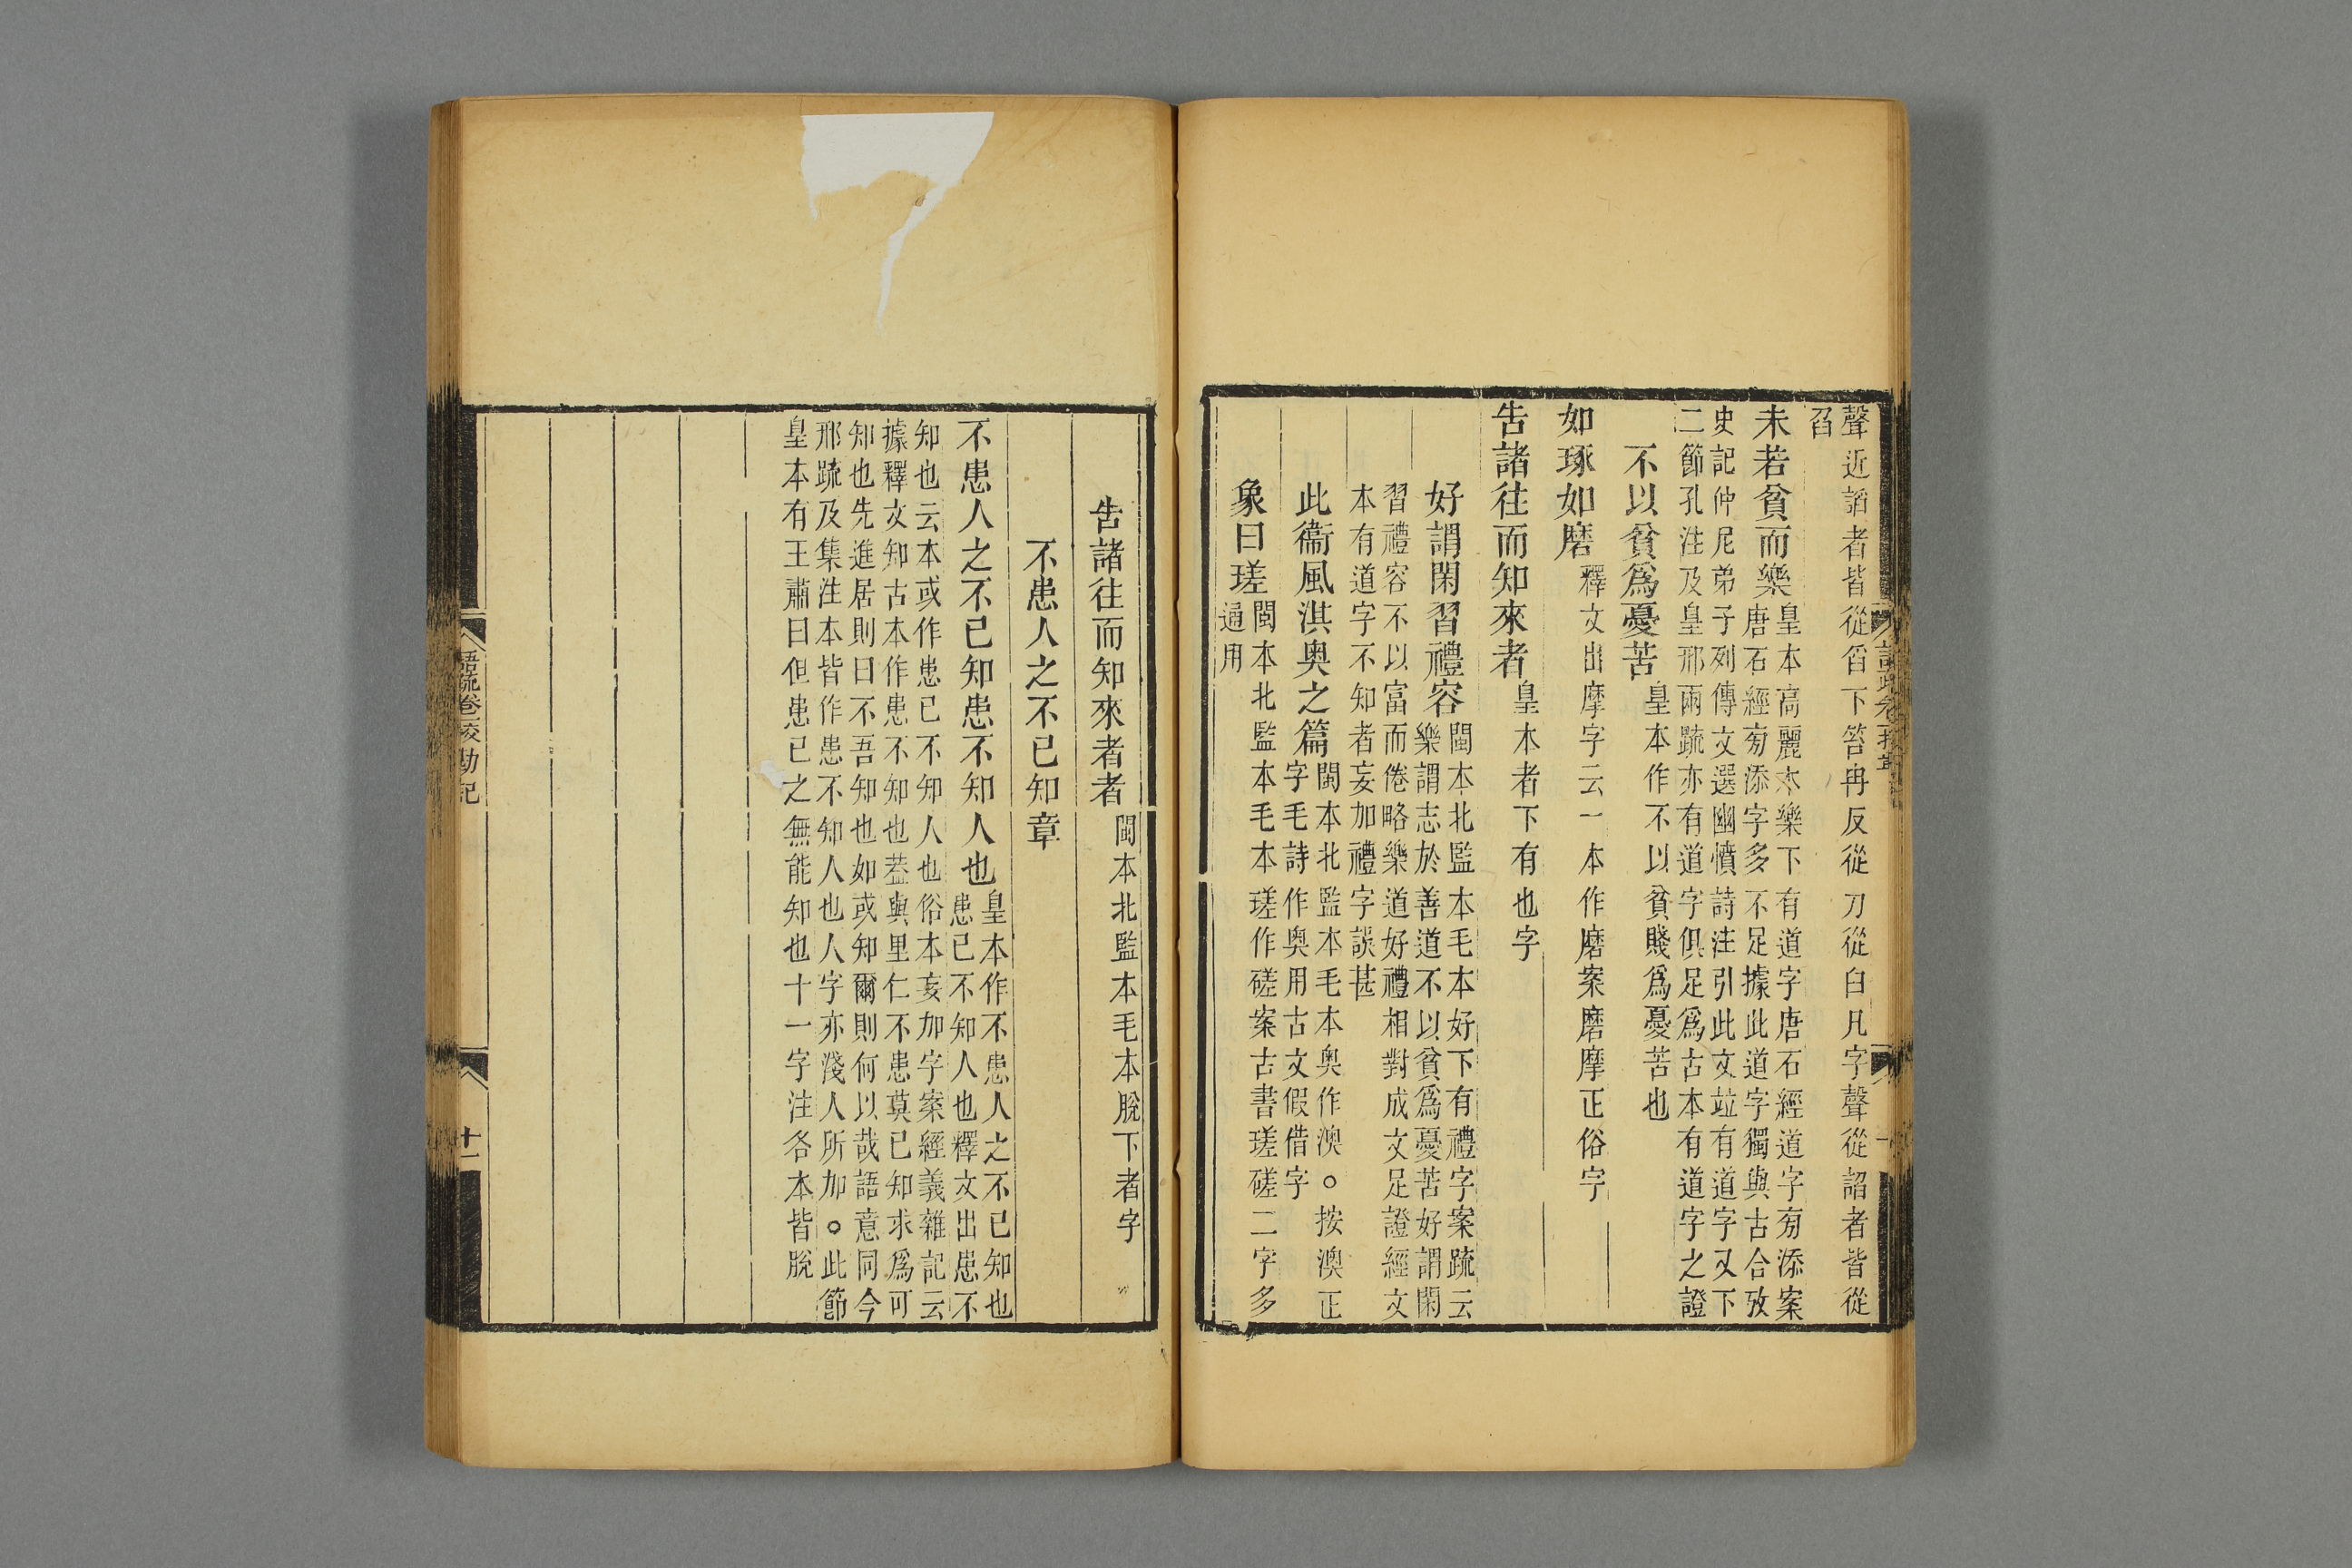 聲近謟者皆從臽下笞冉反從刀從臼凡字聲從謟者皆從
臽
未若貧而樂皇本高麗本樂下有道字唐石經道字㫄添案
唐石經㫄添字多不足據此道字獨與古合攷
史記仲尼弟子列傳文選幽憤詩注引此文竝有道字又下
二節孔注及皇邢兩疏亦有道字俱足爲古本有道字之證
不以貧爲憂苦皇本作不以貧賤爲憂苦也
如琢如磨釋文出摩字云一本作磨案磨摩正俗字
告諸往而知來者皇本者下有也字
好謂閑習禮容閩本北監本毛本好下有禮字案疏云
樂謂志於善道不以貧爲憂苦好謂閑
習禮容不以富而倦略樂道好禮相對成文足證經文
本有道字不知者妄加禮字誤甚
此衞風淇奥之篇閩本北監本毛本奥作澳○按澳正
字毛詩作奥用古文假借字
象曰瑳閩本北監本毛本瑳作磋案古書瑳磋二字多
通用
告諸往而知來者者閩本北監本毛本脫下者字
不患人之不已知章
不患人之不已知患不知人也皇本作不患人之不已知也
患已不知人也釋文出患不
知也云本或作患已不知人也俗本妄加字案經義雜記云
據釋文知古本作患不知也葢與里仁不患莫已知求爲可
知也先進居則曰不吾知也如或知爾則何以哉語意同今
邢疏及集注本皆作患不知人也人字亦淺人所加○此節
皇本有王肅曰但患已之無能知也十一字注各本皆脫
語疏卷一校勘記
十一